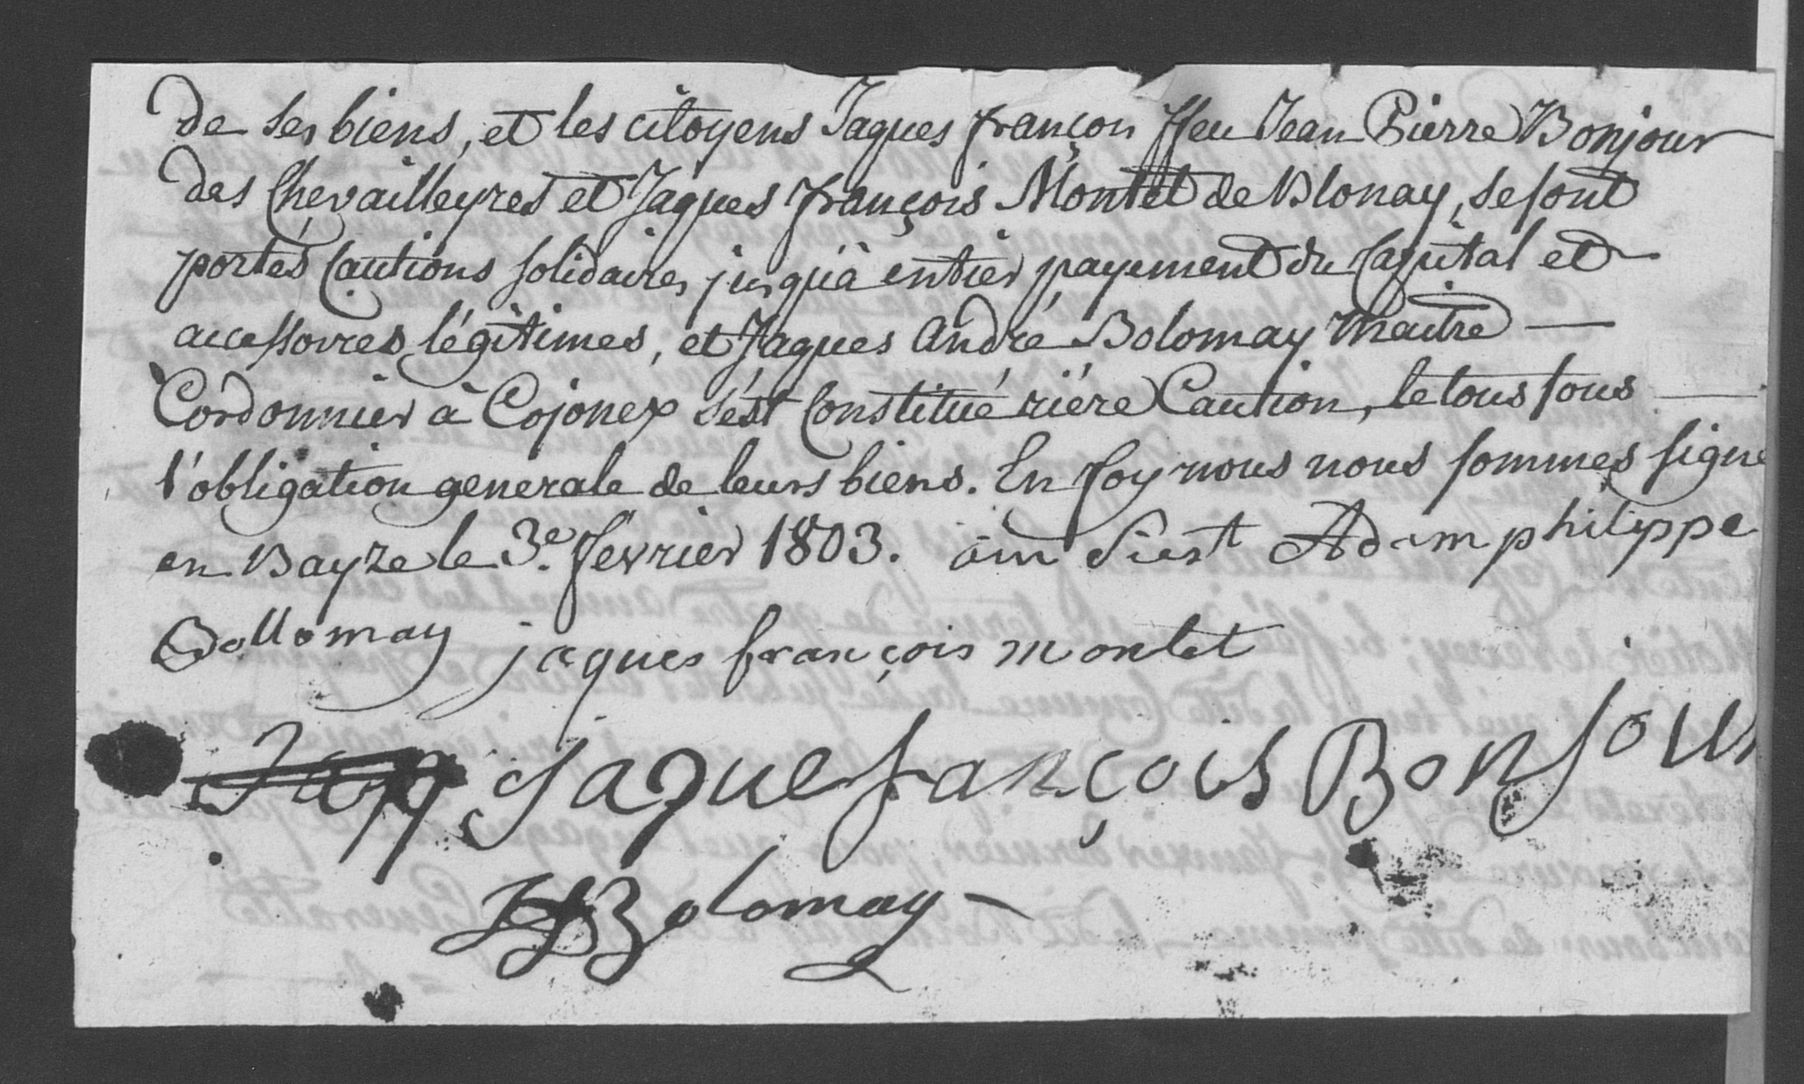 de ses biens, et les citoyens Jaques françois ffeu Jean Pierre Bonjour
des Chevailleyres et Jaques françois Montet de Blonay, se sont
portés Cautions solidaires jusqu'à entier payement du Capital et
accessoires légitimes, et Jaques André Bolomay Maitre
Cordonnier à Cojonex s'est Constitué riére Caution, le tous sous
l'obligation generale de leurs biens. En foy nous nous sommes signé
en Bayze le 3e. fevrier 1803. ainsi s'est Adam philippe
Bollomay jaques françois montet
Jaq Jaque françois Bonjour
Bolomay